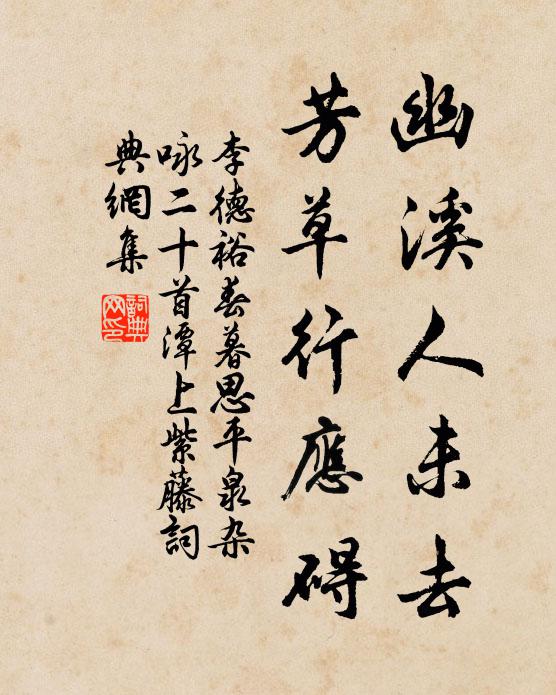 幽溪人未去
芳草行應碍
李德裕春暮思平泉杂
咏二十首潭上紫藤詞
典網集
詞典网印